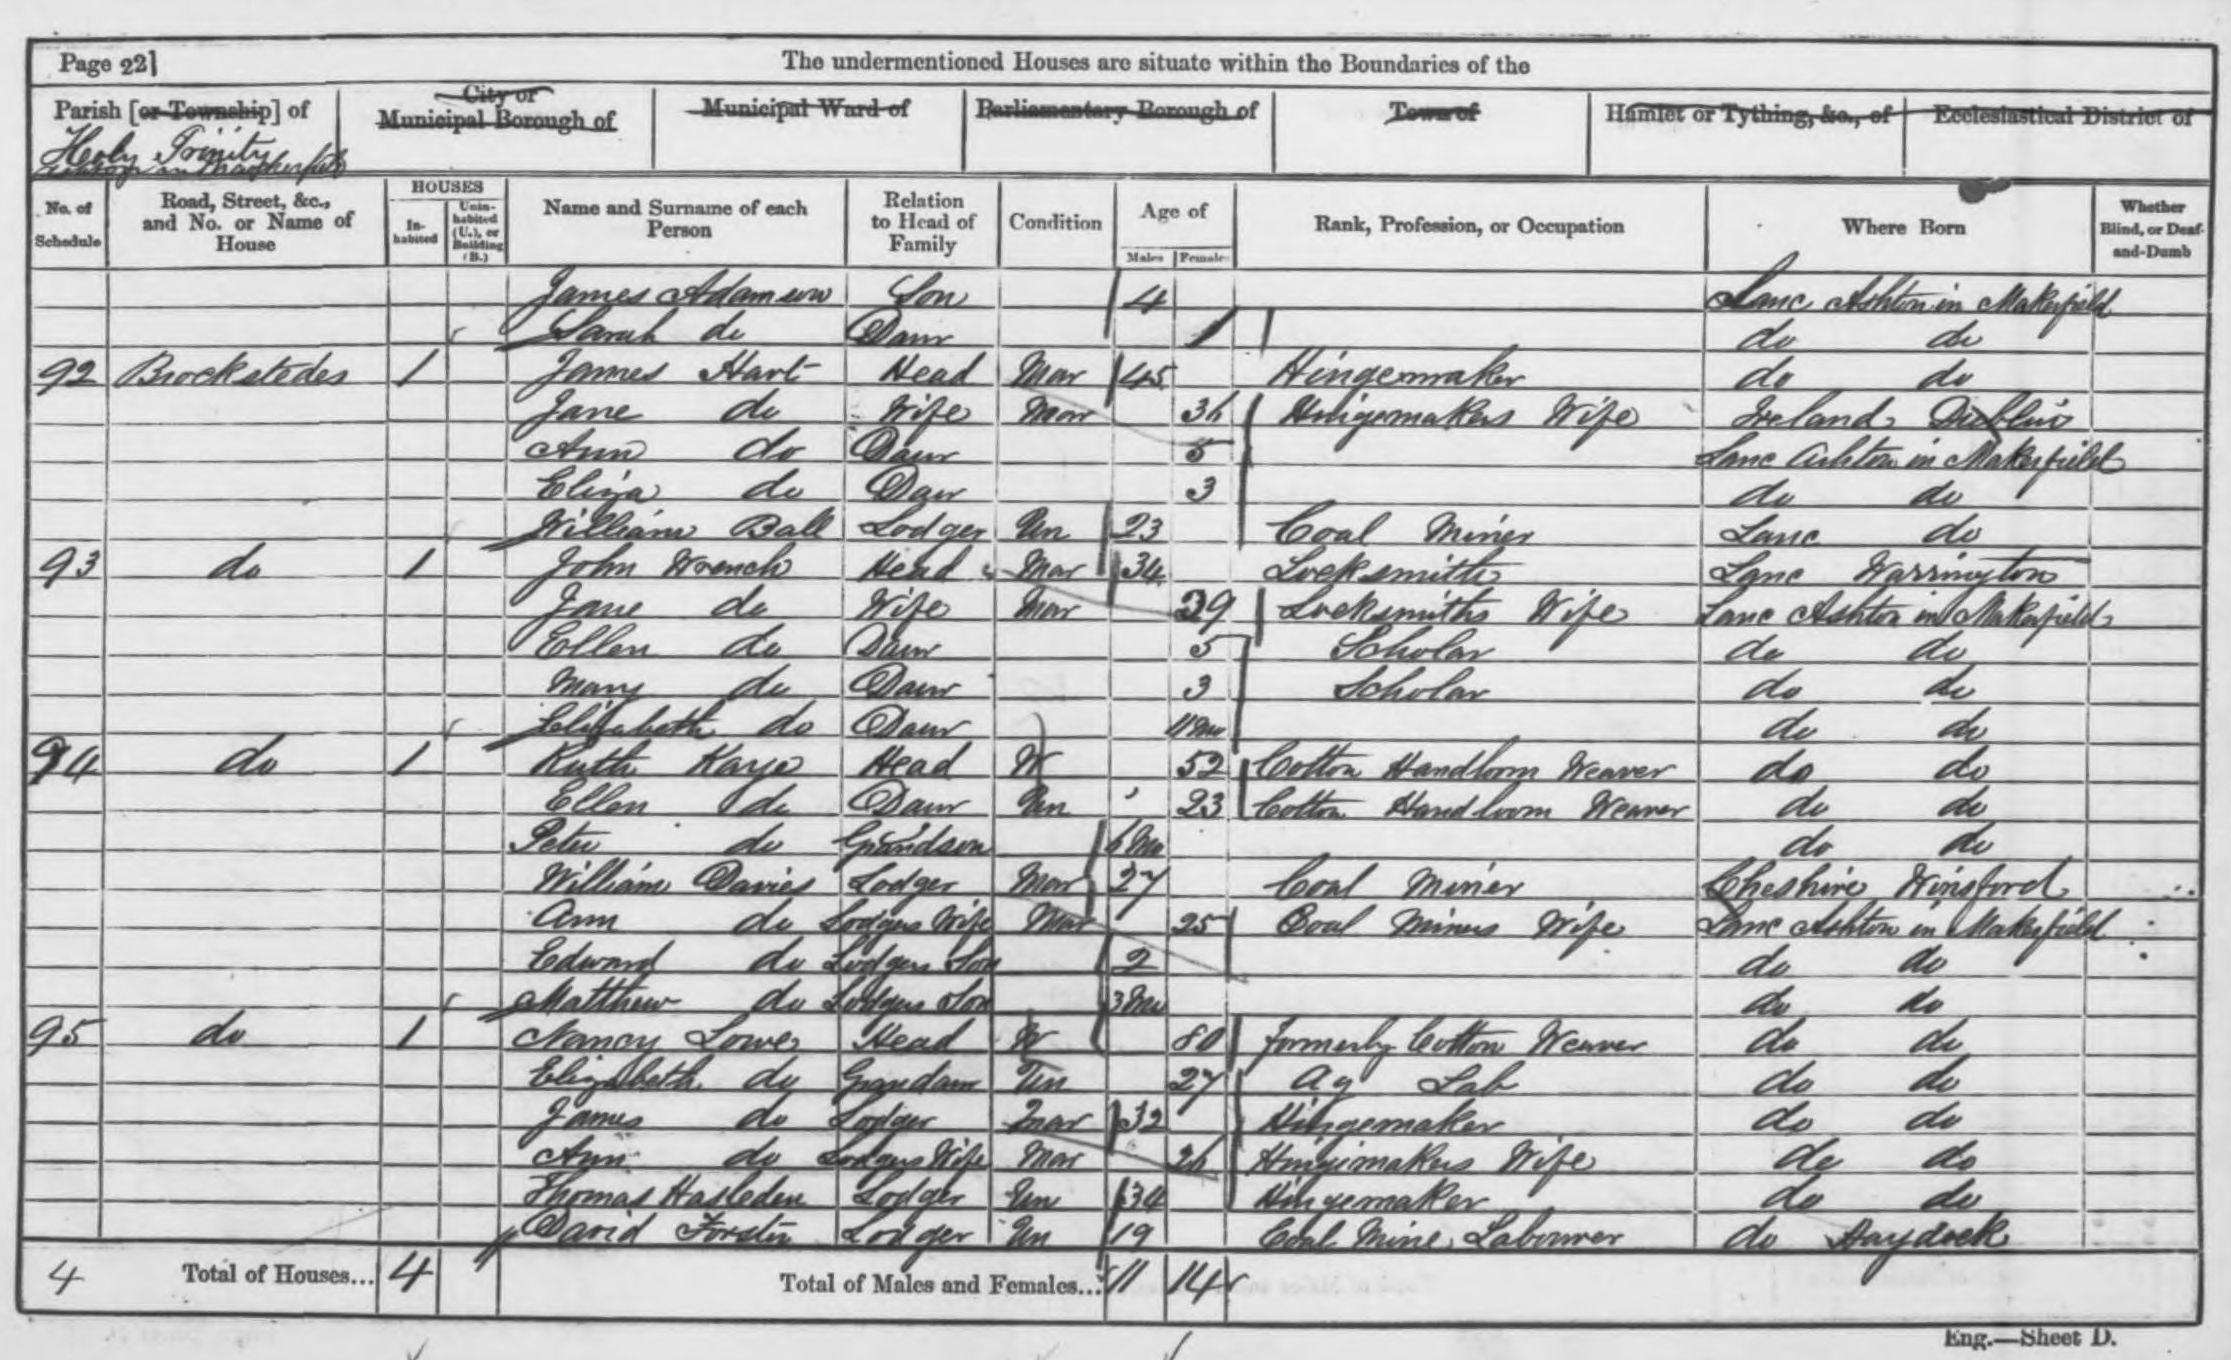 Page 22]
The undermentioned Houses are situate within the Boundaries of the
Parish [or Township] of
City or Municipal Borough of
Municipal Ward of
Parliamentary Borough of
Town of
Hamlet or Tything, &c., of
Ecclesiastical District of
Holy Trinity
in Makerfield
No. of Schedule
Road, Street, &c., and No. or Name of House
HOUSES
In-habited
Unin-habited (U.), or Building (B.)
Name and Surname of each Person
Relation to Head of Family
Condition
Age of
Males Females
Rank, Profession, or Occupation
Where Born
Whether Blind, or Deaf-and-Dumb
James Adamson Son 4 Lanc Ashton in Makerfield
Sarah do Daur 1 do do
92 Brockstedes 1 James Hart Head Mar 45 Hingemaker do do
Jane do Wife Mar 36 Hingemakers Wife Ireland Dublin
Ann do Daur 5 Lanc Ashton in Makerfield
Eliza do Daur 3 do do
William Ball Lodger Un 23 Coal Miner Lanc do
93 do 1 John Wrench Head Mar 34 Locksmith Lanc Warrington
Jane do Wife Mar 29 Locksmiths Wife Lanc Ashton in Makerfield
Ellen do Daur 5 Scholar do do
Mary do Daur 3 Scholar do do
Elizabeth do Daur 11 Mo do do
94 do 1 Ruth Kaye Head W 52 Cotton Handloom Weaver do do
Ellen do Daur Un 23 Cotton Handloom Weaver do do
Peter do Grandson 6 Mo do do
William Davies Lodger Mar 27 Coal Miner Cheshire Winsford
Ann do Lodgers Wife Mar 25 Coal Miners Wife Lanc Ashton in Makerfield
Edward do Lodgers Son 2 do do
Matthew do Lodgers Son 3 Mo do do
95 do 1 Nancy Lowe Head W 80 formerly Cotton Weaver do do
Elizabeth do Grandaur Un 27 Ag Lab do do
James do Lodger Mar 32 Hingemaker do do
Ann do Lodgers Wife Mar 26 Hingemakers Wife do do
Thomas Hasleden Lodger Un 34 Hingemaker do do
David Forster Lodger Un 19 Coal Mine Labourer do Haydock
4 Total of Houses... 4 Total of Males and Females... 11 14
Eng.—Sheet D.